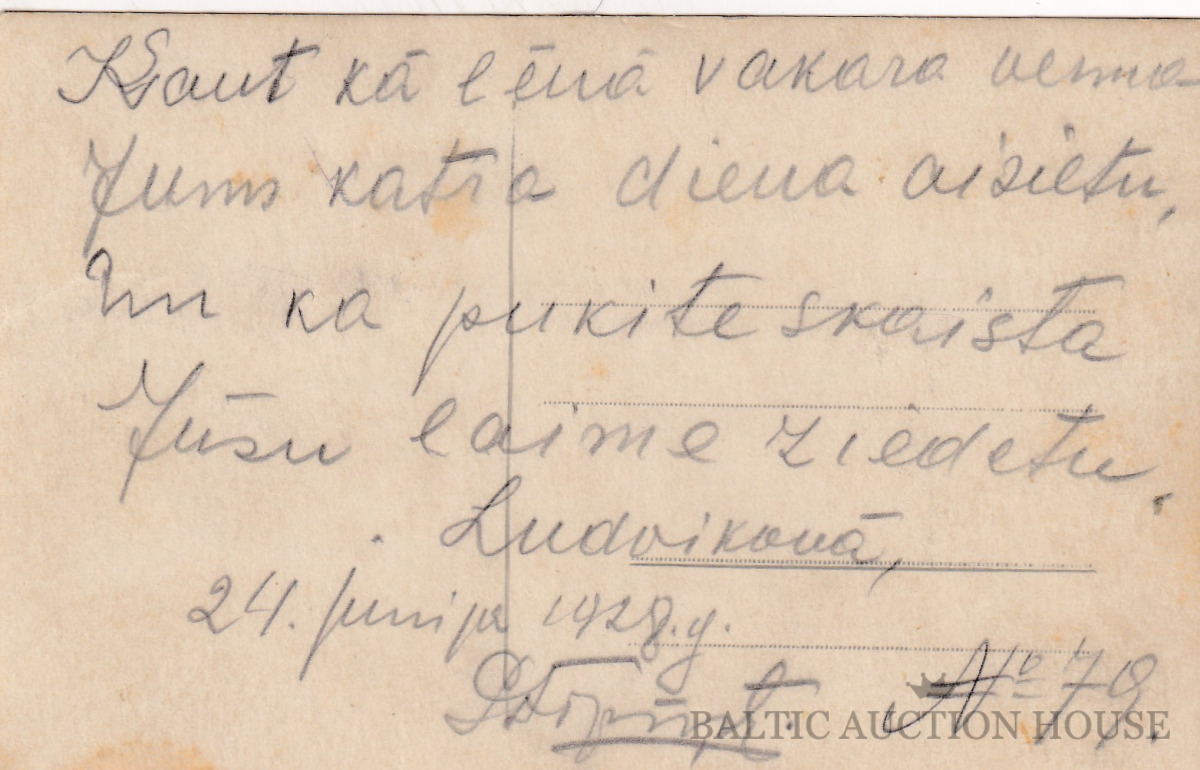 Kaut kā lēnā vakara vēsma
Jums katra diena aizietu,
Un ka pukite skaista
Jūsu laime ziedetu.
Ludvikovā,
24. junija 1928.g.
№ 79.
BALTIC AUCTION HOUSE